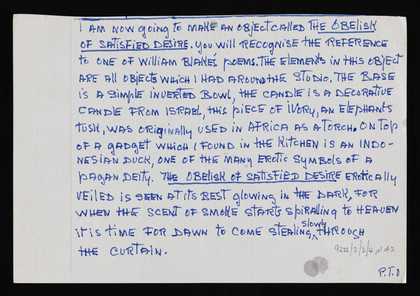 I AM NOW GOING TO MAKE AN OBJECT CALLED THE OBELISK
OF SATISFIED DESIRE. YOU WILL RECOGNISE THE REFERENCE
TO ONE OF WILLIAM BLAKE'S POEMS. THE ELEMENTS IN THIS OBJECT
ARE ALL OBJECTS WHICH I HAD AROUND THE STUDIO. THE BASE
IS A SIMPLE INVERTED BOWL, THE CANDLE IS A DECORATIVE
CANDLE FROM ISRAEL, THIS PIECE OF IVORY, AN ELEPHANTS
TUSK, WAS ORIGINALLY USED IN AFRICA AS A TORCH. ON TOP
OF A GADGET WHICH I FOUND IN THE KITCHEN IS AN INDO-
NESIAN DUCK, ONE OF THE MANY EROTIC SYMBOLS OF A
PAGAN DEITY. THE OBELISK OF SATISFIED DESIRE EROTICALLY
VEILED IS SEEN AT ITS BEST GLOWING IN THE DARK, FOR
WHEN THE SCENT OF SMOKE STARTS SPIRALLING TO HEAVEN
IT IS TIME FOR DAWN TO COME STEALING SLOWLY THROUGH
THE CURTAIN.
P.T.O